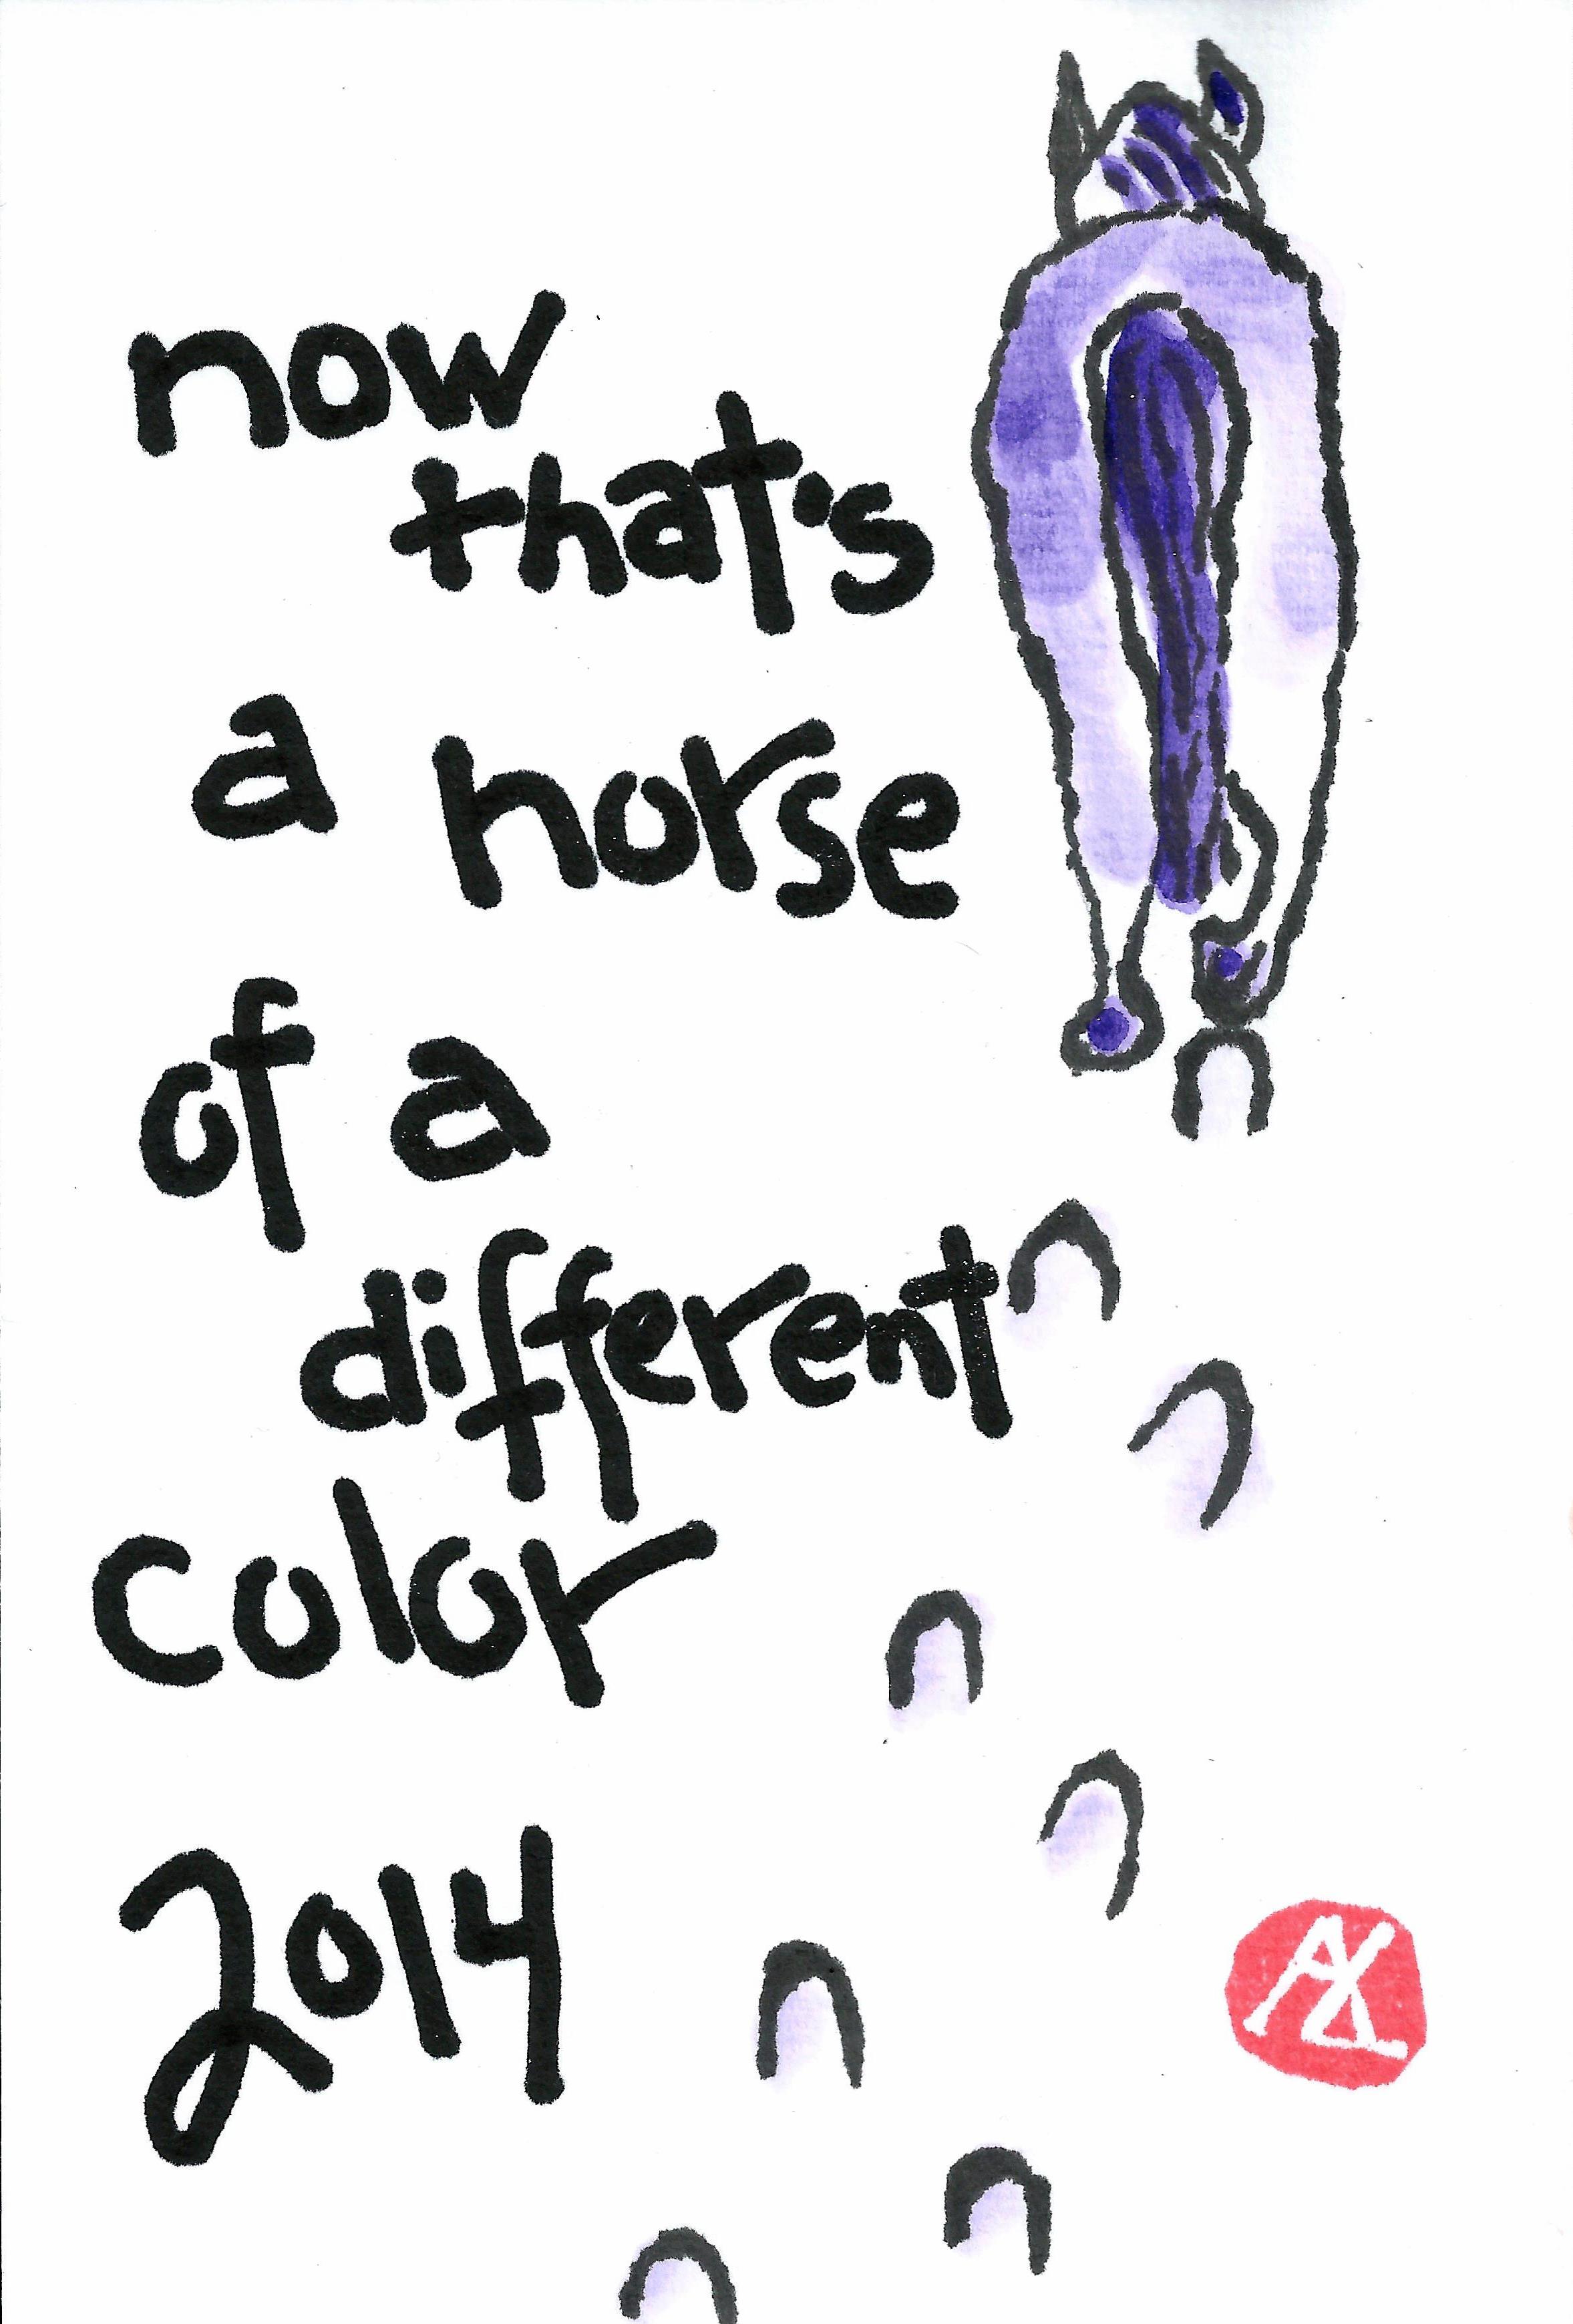 now
that's
a horse
of a
different
color
2014